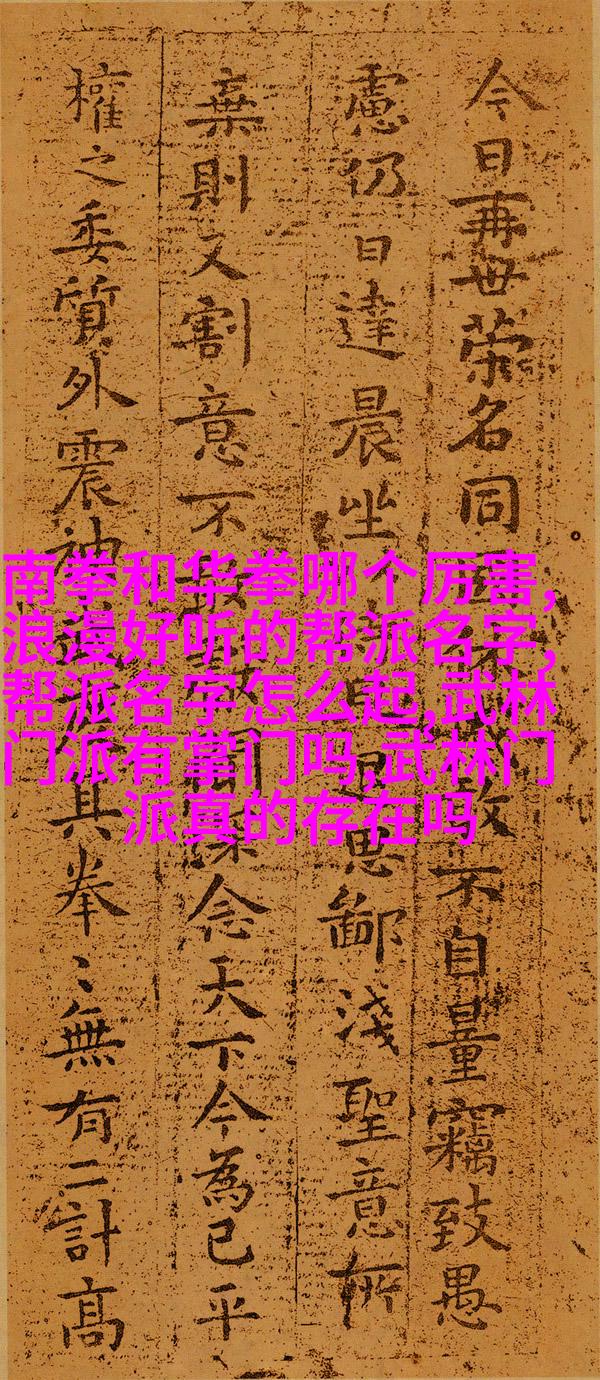 今日再世荣名同
不自量竊致愚
慮仍日達晨坐
思鄙淺聖意所
棄則又割意不
念天下今為已平
權之委質外震神
其拳〻無有二計高
南拳和华拳哪个厉害,
浪漫好听的帮派名字,
帮派名字怎么起,武林
门派有掌门吗,武林门
派真的存在吗